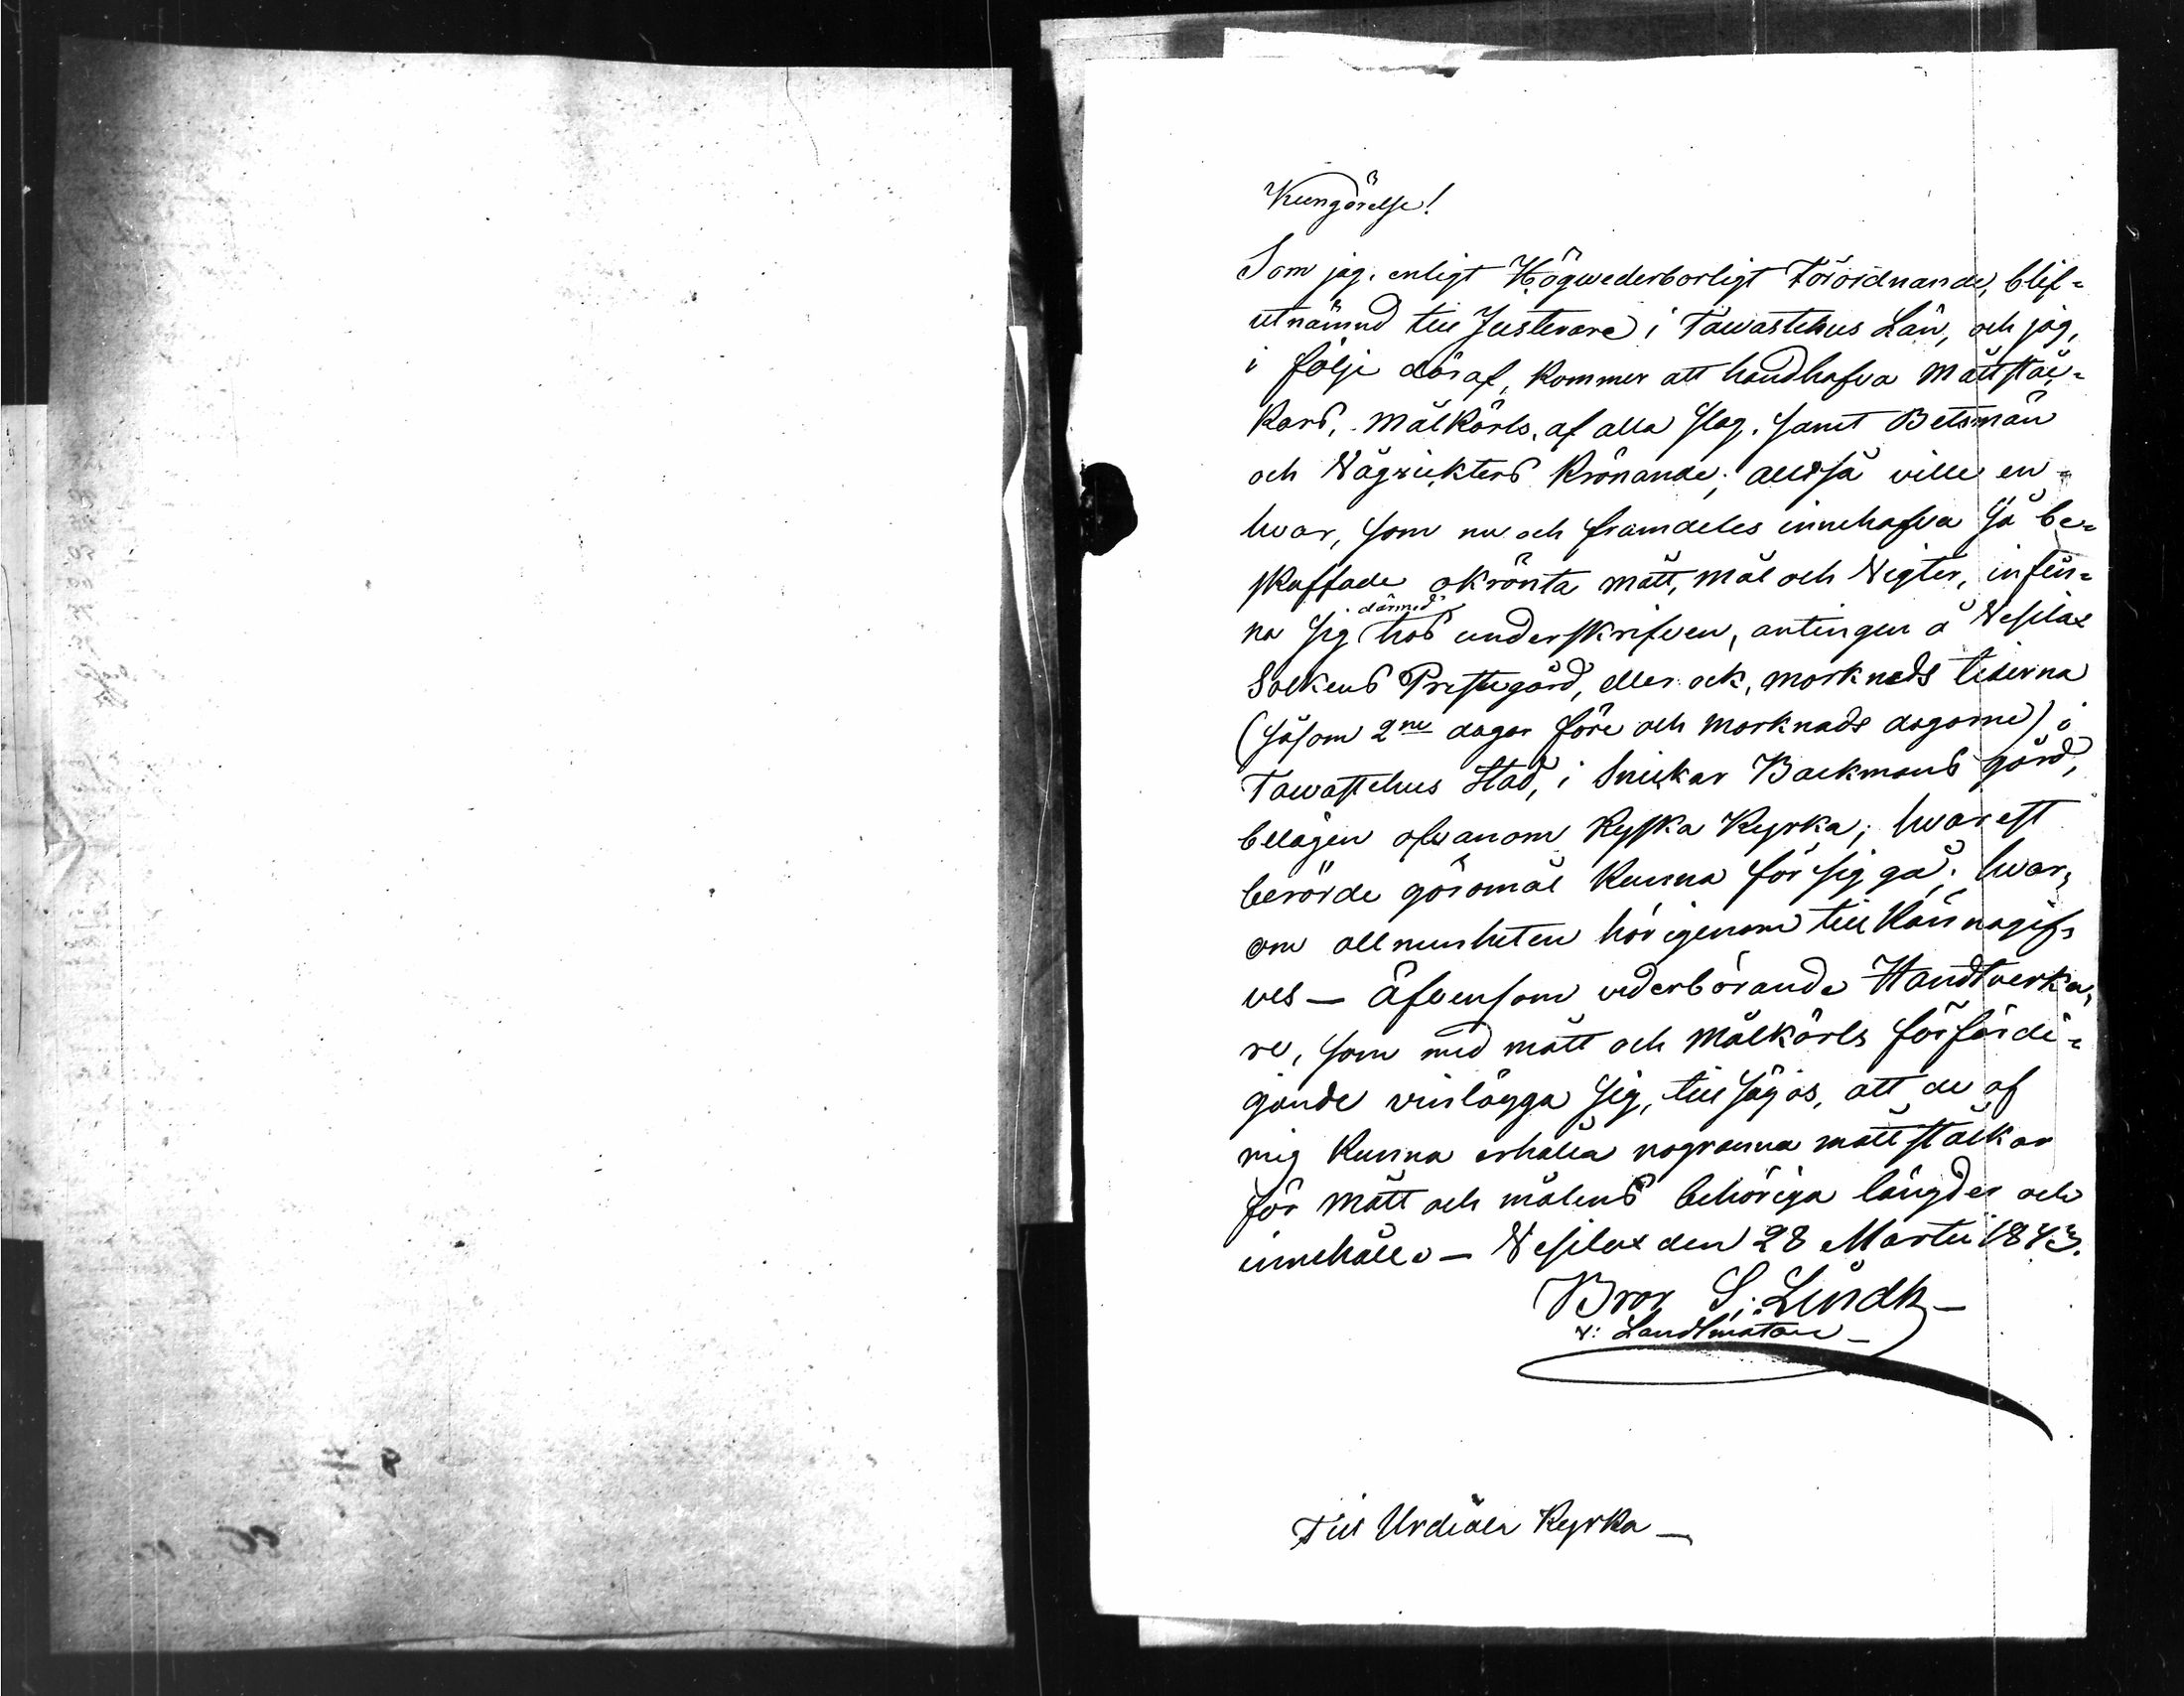 Kungörelse!
Som jag, enligt Högwederborligt Förordnande, blif=
utnämnd till Justerare i Tawastehus Län, och jag,
i följe däraf, kommer att handhafva måttstäc=
kars, målkärls, af alla slag, samt Betsmän
och Vägrickters Krönande; alltså ville en=
hvar, som nu och framdeles innehafva så be=
skaffade okrönta mått, mål och Vigter, infin=
na sig därmed hos underskrifven, antingen å Vesilax
Sockens Prestegård, eller ock, marknads tiderna
(såsom 2ne dagar före och marknads dagarne) i
Tawastehus Stad, i Snickar Backmans gård,
belägen ofvanom Ryska Kyrka; hvarest
berörde göromål kunna för sig gå; hvar=
om allmenheten härigenom till kännagif=
ves — Äfvensom vederbörande Handtverka=
re, som med mått och målkärls förfärdi=
gande vinlägga sig, till sägas, att de af
mig kunna erhålla nogranna måttstäckar
för mått och målens behöriga längder och
innehåll. — Vesilax den 28 Martii 1843.
Bror S. Lindh —
v: Landtmätare —
Till Urdiala Kyrka —